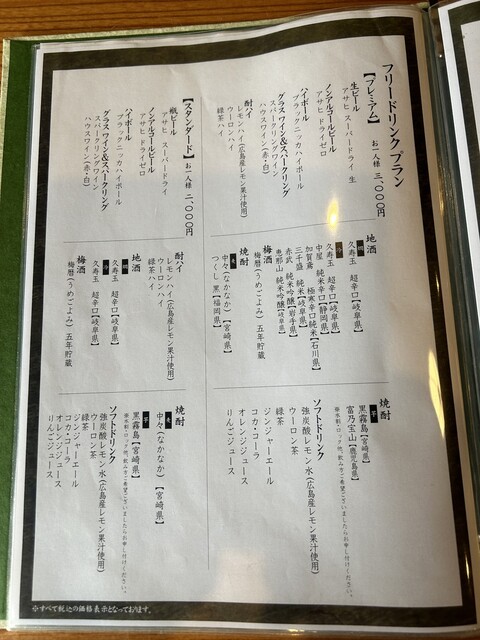 フリードリンクプラン
【プレミアム】お一人様 三、〇〇〇円
生ビール
アサヒ スーパードライ 生
ノンアルコールビール
アサヒ ドライゼロ
ハイボール
ブラックニッカハイボール
グラスワイン&スパークリング
スパークリングワイン
ハウスワイン(赤・白)
酎ハイ
レモンハイ(広島産レモン果汁使用)
ウーロンハイ
緑茶ハイ
地酒
久寿玉 超辛口【岐阜県】
久寿玉 超辛口【岐阜県】
中屋 純米辛口【静岡県】
加賀鳶 極寒辛口純米【石川県】
三千盛 純米【岐阜県】
赤武 純米吟醸【岩手県】
恵那山 純米吟醸【岐阜県】
梅酒
梅暦(うめごよみ) 五年貯蔵
焼酎
麦
中々(なかなか)【宮崎県】
つくし 黒【福岡県】
焼酎
芋
黒霧島【宮崎県】
富乃宝山【鹿児島県】
※水割・ロック他、飲み方ご希望ございましたらお申し付けください。
ソフトドリンク
強炭酸レモン水(広島産レモン果汁使用)
ウーロン茶
緑茶
ジンジャーエール
コカ・コーラ
オレンジジュース
りんごジュース
【スタンダード】お一人様 二、〇〇〇円
瓶ビール
アサヒ スーパードライ
ノンアルコールビール
アサヒ ドライゼロ
ハイボール
ブラックニッカハイボール
グラスワイン&スパークリング
スパークリングワイン
ハウスワイン(赤・白)
酎ハイ
レモンハイ(広島産レモン果汁使用)
ウーロンハイ
緑茶ハイ
地酒
久寿玉 超辛口【岐阜県】
久寿玉 超辛口【岐阜県】
梅酒
梅暦(うめごよみ) 五年貯蔵
焼酎
麦
中々(なかなか)【宮崎県】
芋
黒霧島【宮崎県】
※水割・ロック他、飲み方ご希望ございましたらお申し付けください。
ソフトドリンク
強炭酸レモン水(広島産レモン果汁使用)
ウーロン茶
緑茶
ジンジャーエール
コカ・コーラ
オレンジジュース
りんごジュース
※すべて税込の価格表示となっております。